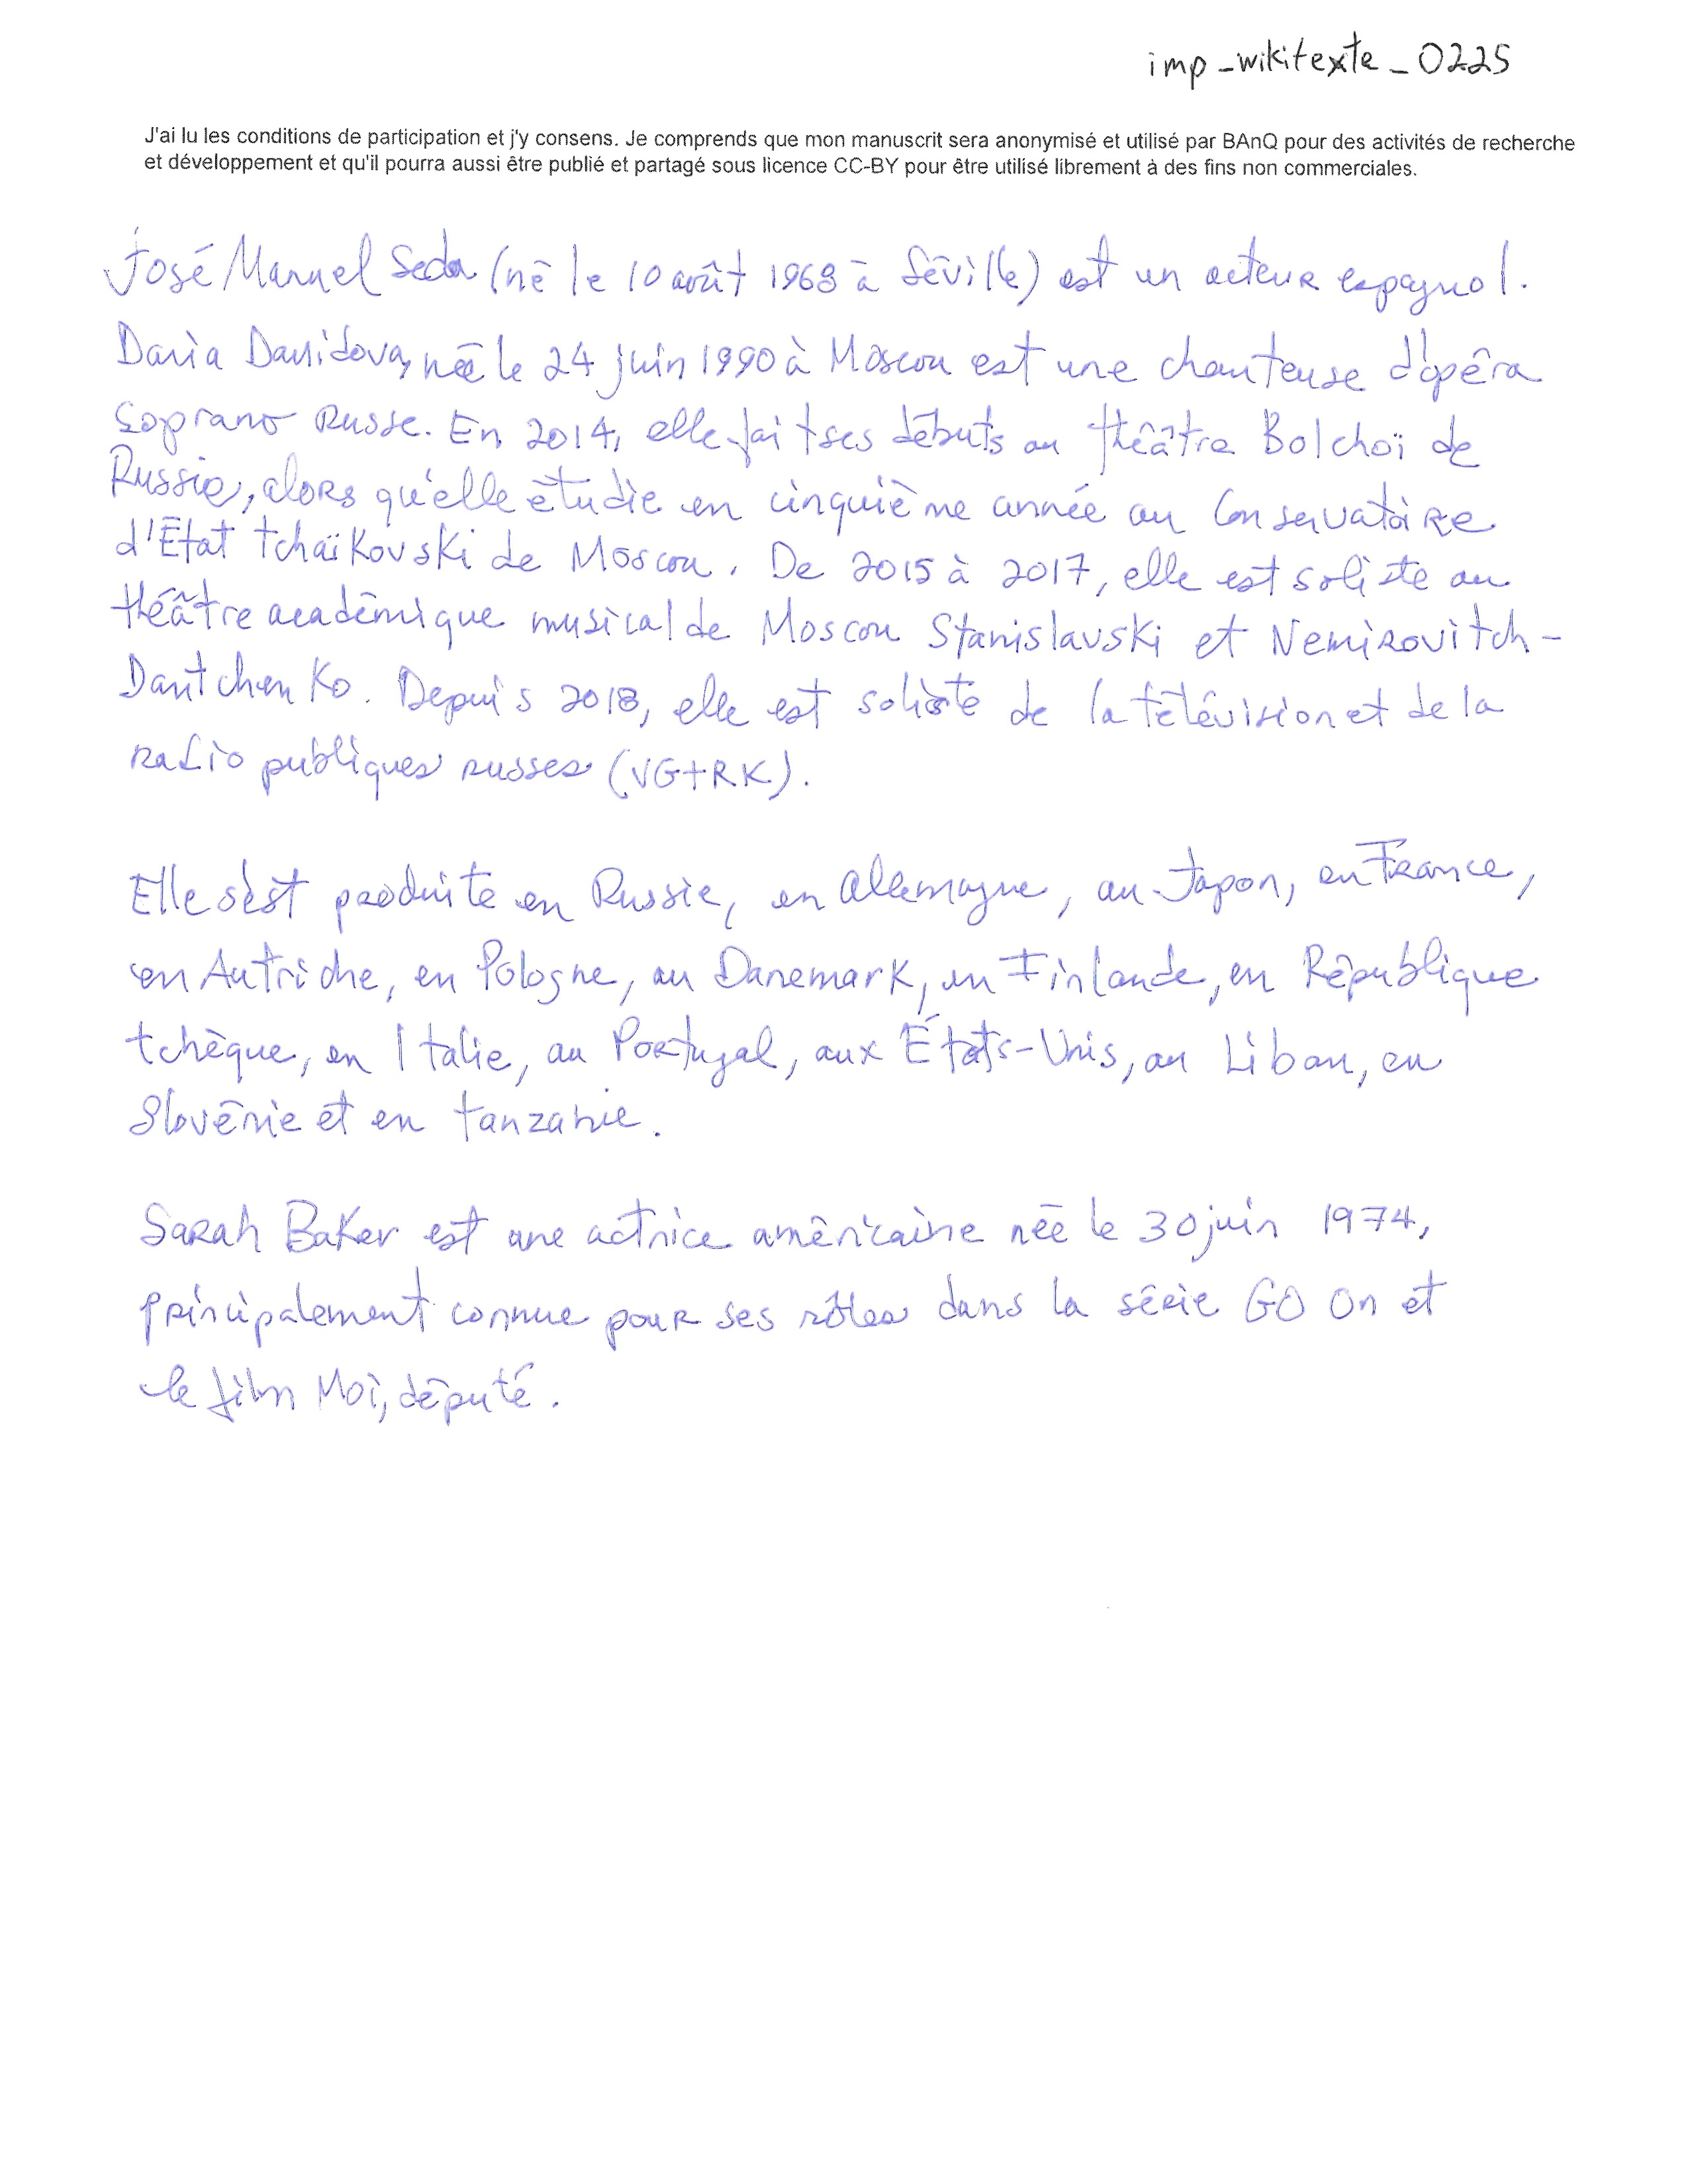 imp_wikitexte_0225
J'ai lu les conditions de participation et j'y consens. Je comprends que mon manuscrit sera anonymisé et utilisé par BAnQ pour des activités de recherche
et développement et qu'il pourra aussi être publié et partagé sous licence CC-BY pour être utilisé librement à des fins non commerciales.
José Manuel Seda (né le 10 août 1968 à Séville) est un acteur espagnol.
Daria Davidova, née le 24 juin 1990 à Moscou est une chanteuse d'opéra
soprano Russe. En 2014, elle fait ses débuts au théâtre Bolchoï de
Russie, alors qu'elle étudie en cinquième année au Conservatoire
d'État tchaïkovski de Moscou. De 2015 à 2017, elle est soliste au
théâtre académique musical de Moscou Stanislavski et Nemirovitch-
Dantchenko. Depuis 2018, elle est soliste de la télévision et de la
radio publiques russes (VGTRK).
Elle s'est produite en Russie, en Allemagne, au Japon, en France,
en Autriche, en Pologne, au Danemark, en Finlande, en République
tchèque, en Italie, au Portugal, aux États-Unis, au Liban, en
Slovénie et en tanzanie.
Sarah Baker est une actrice américaine née le 30 juin 1974,
principalement connue pour ses rôles dans la série GO On et
le film Moi, député.